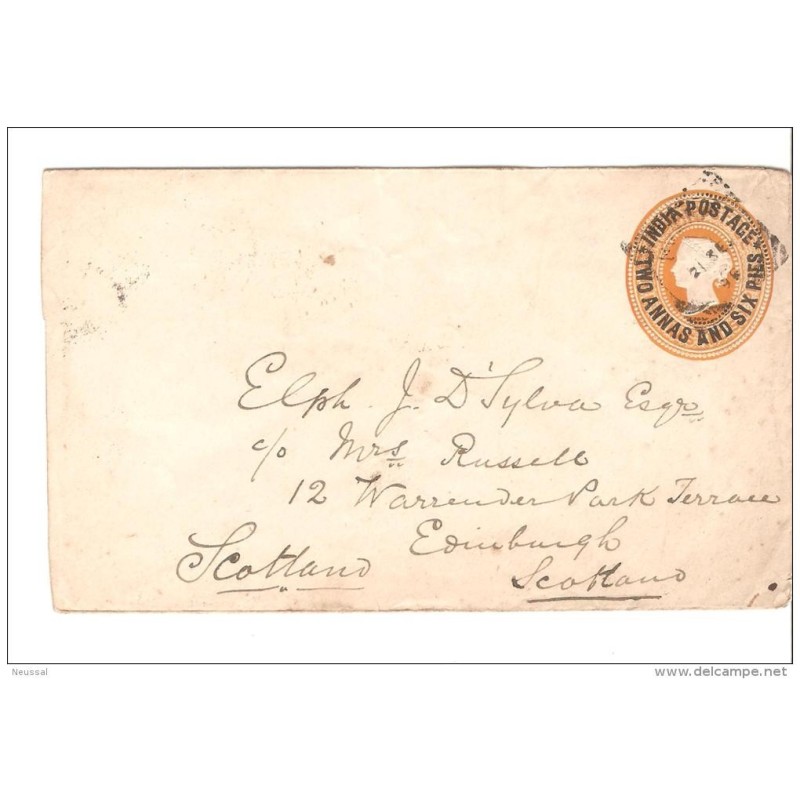 INDIA POSTAGE
TWO ANNAS AND SIX PIES
Elph. J. D'Sylva Esqre
c/o Mrs Russell
12 Warrender Park Terrace
Edinburgh
Scotland
Scotland
Neussal
delcampe.net